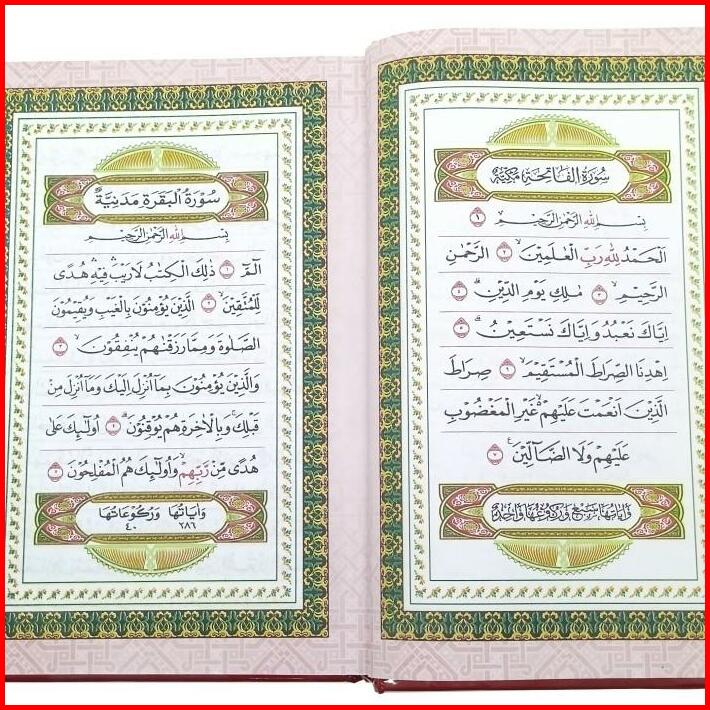 سُوْرَةُ الْفَاتِحَةِ مَكِّيَّةٌ
بِسْمِ اللّٰهِ الرَّحْمٰنِ الرَّحِيْمِ ۝١
اَلْحَمْدُ لِلّٰهِ رَبِّ الْعٰلَمِيْنَ ۝٢ الرَّحْمٰنِ
الرَّحِيْمِ ۝٣ مٰلِكِ يَوْمِ الدِّيْنِ ۝٤
اِيَّاكَ نَعْبُدُ وَاِيَّاكَ نَسْتَعِيْنُ ۝٥
اِهْدِنَا الصِّرَاطَ الْمُسْتَقِيْمَ ۝٦ صِرَاطَ
الَّذِيْنَ اَنْعَمْتَ عَلَيْهِمْ غَيْرِ الْمَغْضُوْبِ
عَلَيْهِمْ وَلَا الضَّآلِّيْنَ ۝٧
وَاٰيَاتُهَا سَبْعٌ وَرُكُوْعُهَا وَاحِدٌ
سُوْرَةُ الْبَقَرَةِ مَدَنِيَّةٌ
بِسْمِ اللّٰهِ الرَّحْمٰنِ الرَّحِيْمِ
الٓمّٓ ۝١ ذٰلِكَ الْكِتٰبُ لَا رَيْبَ فِيْهِ هُدًى
لِّلْمُتَّقِيْنَ ۝٢ الَّذِيْنَ يُؤْمِنُوْنَ بِالْغَيْبِ وَيُقِيْمُوْنَ
الصَّلٰوةَ وَمِمَّا رَزَقْنٰهُمْ يُنْفِقُوْنَ ۝٣
وَالَّذِيْنَ يُؤْمِنُوْنَ بِمَآ اُنْزِلَ اِلَيْكَ وَمَآ اُنْزِلَ مِنْ
قَبْلِكَ وَبِالْاٰخِرَةِ هُمْ يُوْقِنُوْنَ ۝٤ اُولٰٓئِكَ عَلٰى
هُدًى مِّنْ رَّبِّهِمْ وَاُولٰٓئِكَ هُمُ الْمُفْلِحُوْنَ ۝٥
وَاٰيَاتُهَا وَرُكُوْعَاتُهَا
٢٨٦ ٤٠